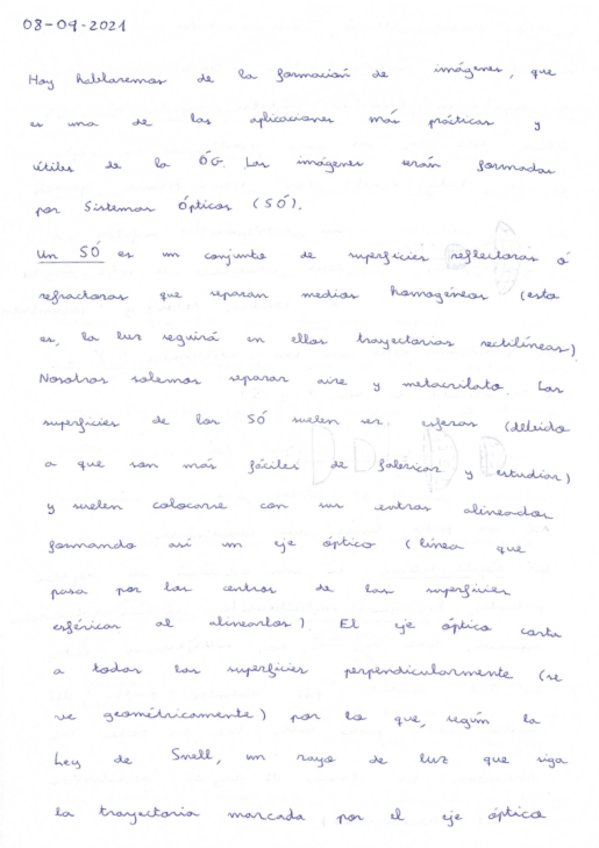 08-09-2021
Hoy hablaremos de la formación de imágenes, que
es una de las aplicaciones más prácticas y
útiles de la ÓG. Las imágenes serán formadas
por Sistemas Ópticos (SÓ).
Un SÓ es un conjunto de superficies reflectoras ó
refractoras que separan medios homogéneos (esto
es, la luz seguirá en ellos trayectorias rectilíneas).
Nosotros solemos separar aire y metacrilato. Las
superficies de los SÓ suelen ser esferas (debido
a que son más fáciles de fabricar y estudiar)
y suelen colocarse con sus centros alineados
formando así un eje óptico (línea que
pasa por los centros de las superficies
esféricas al alinearlos). El eje óptico corta
a todas las superficies perpendicularmente (se
ve geométricamente) por lo que, según la
Ley de Snell, un rayo de luz que siga
la trayectoria marcada por el eje óptico